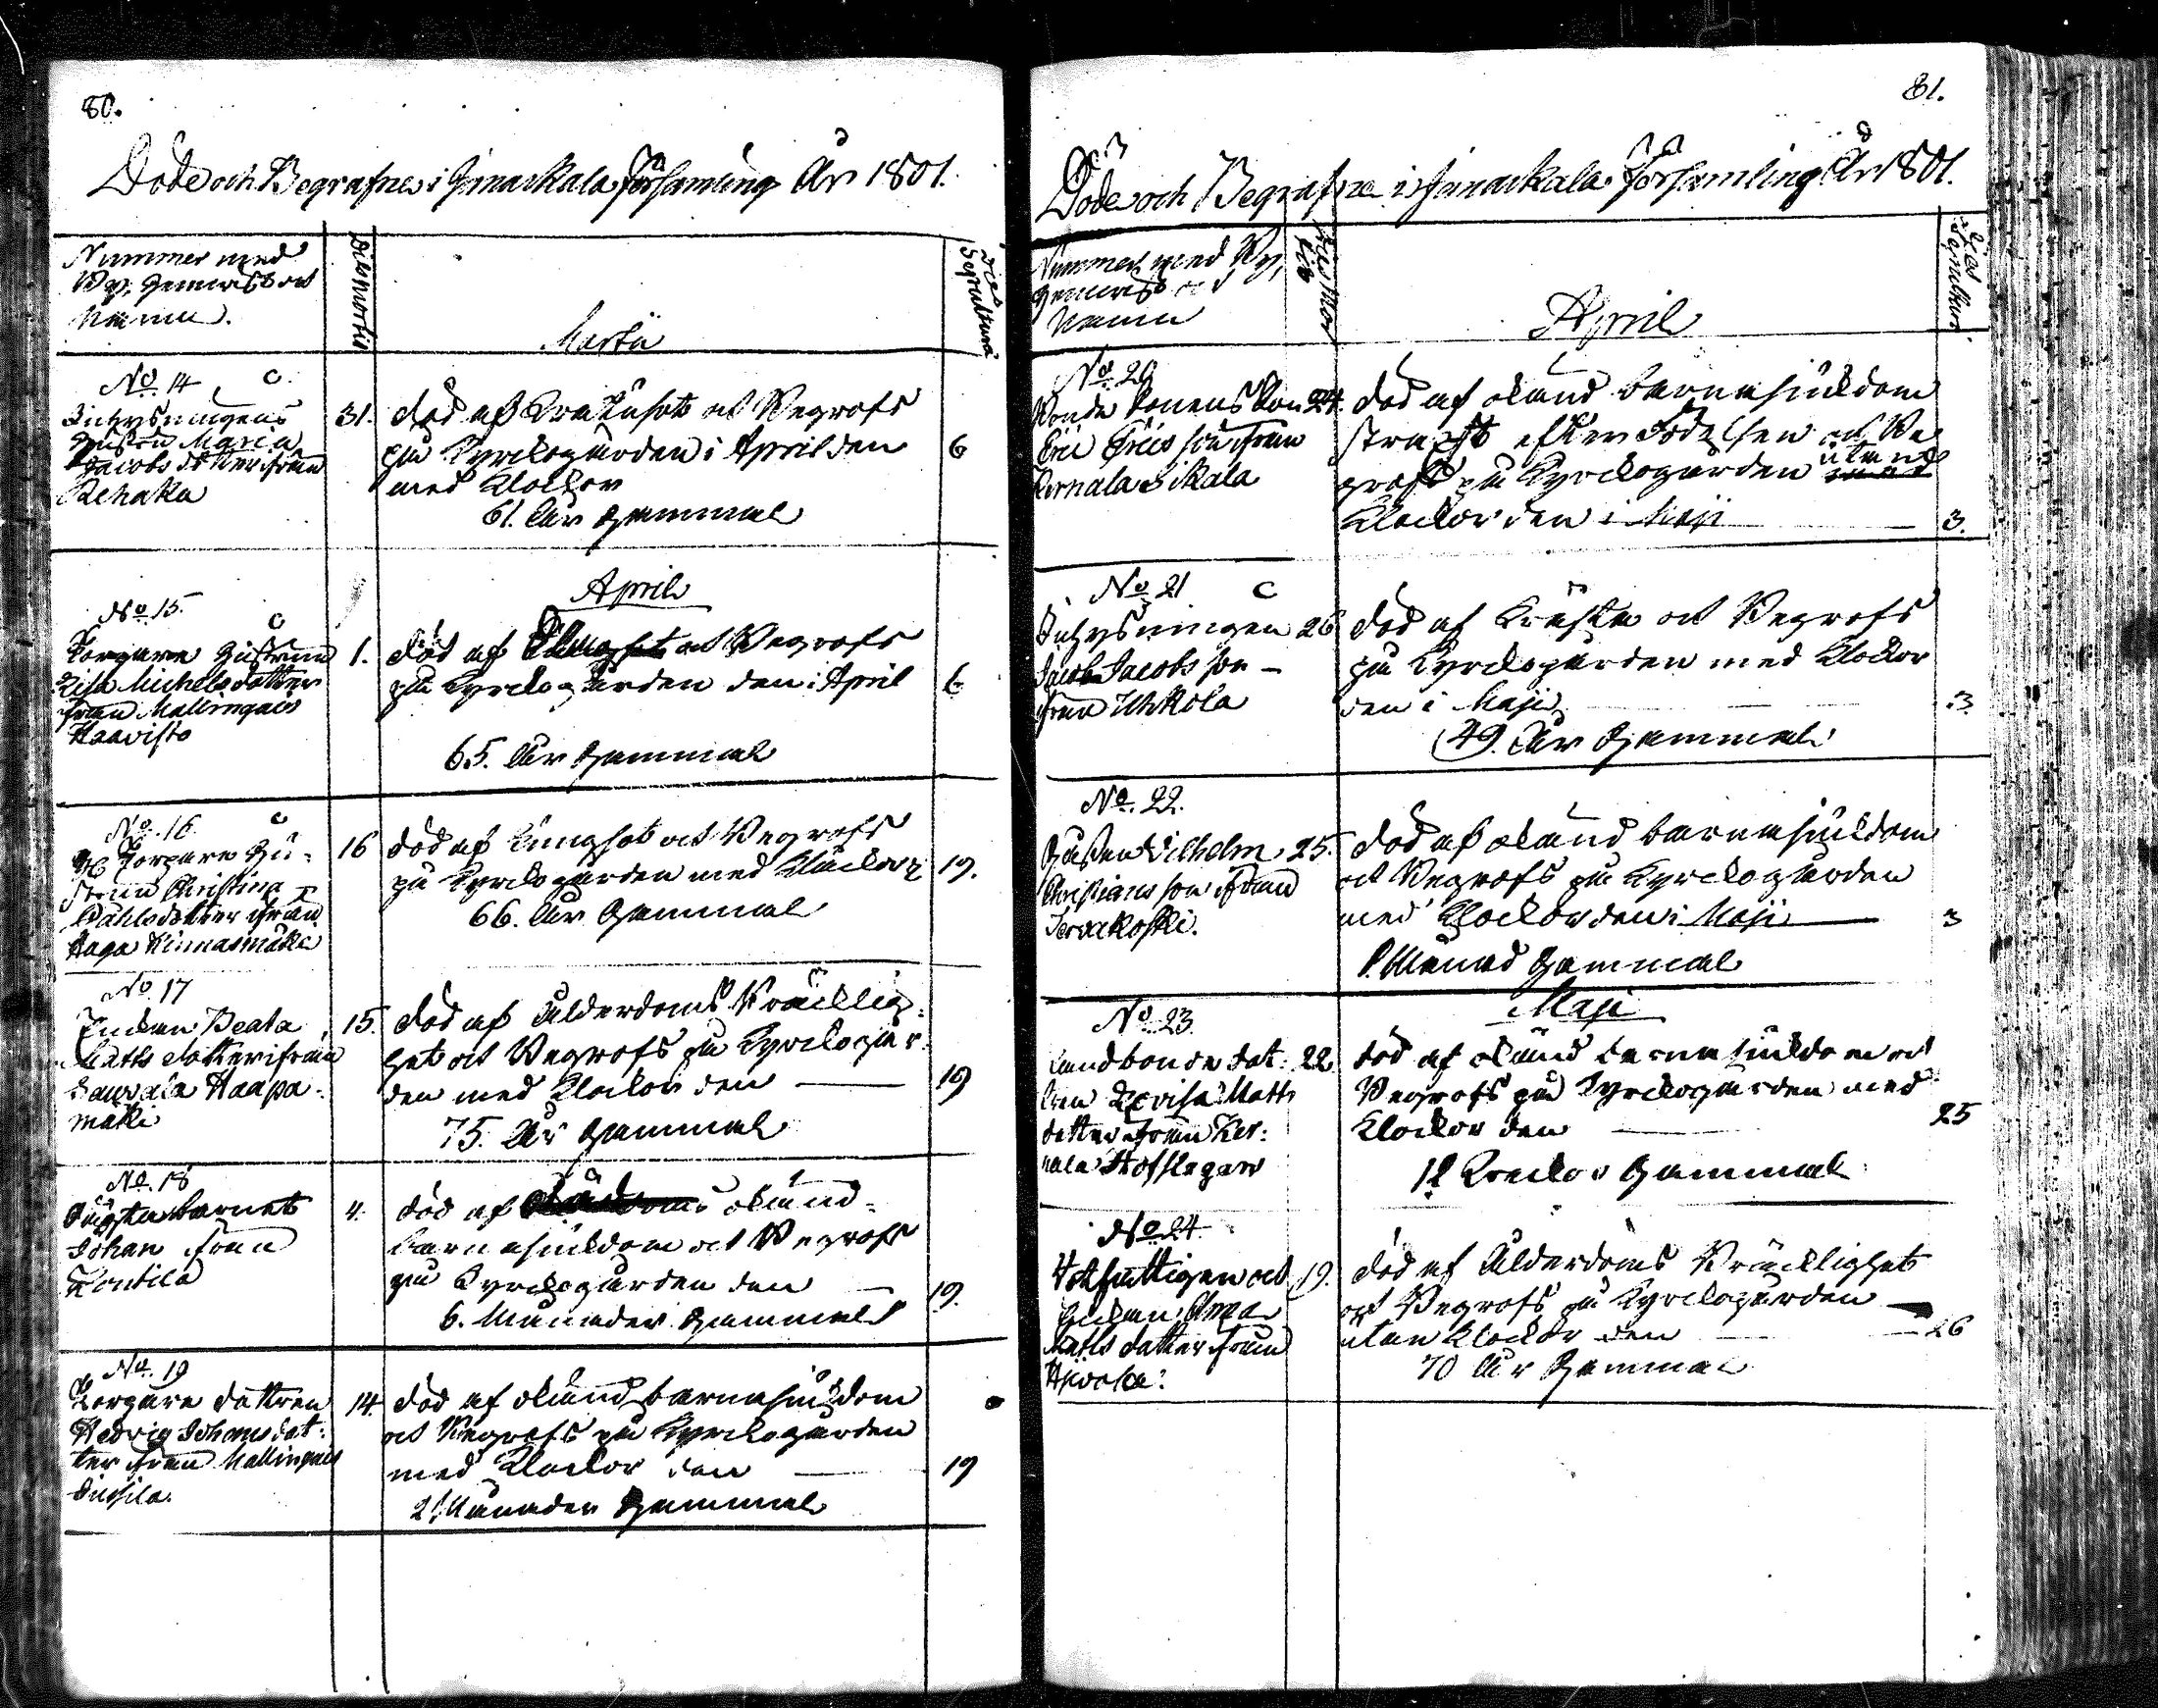 80.
Döde och Begrafne i Janackala Församling År 1801.
Nummer med
By, Hemvist och
Namn.
Dies Mortis
Martii
Dies Sepulturæ
No 14
Inhysningens
Hustru Maria
Jacobs dotter ifrån
Rehaka
31.
död af och Begrofs
på Kyrckogården i April den
med Klockor
61. År Gammal
6
April
No 15.
Torpare Hustrun
Lisa Michels dotter
ifrån Mallingais
Haavisto
1.
död af och Begrofs
på Kyrckogården den i April
65. År Gammal
6
No. 16
Torpare Hu-
strun Christina
Påhlsdotter ifrån
Haga Kinnasmäki
16
död af Lungsot och Begrofs
på Kyrckogården med Klockor
66. År Gammal
19.
No. 17
Enckan Beata
Matts dotter ifrån
Haapa-
mäki
15.
död af Ålderdoms Bräcklig-
het och Begrofs på Kyrckogår-
den med Klockor den
75. År Gammal
19
No. 18
barnet
Johan ifrån
Kontila
4.
död af okänd
barnasjukdom och Begrofs
på Kyrckogården den
6. Månader Gammal
19.
No. 19
Torpare dottren
Hedvig Johans dot-
ter ifrån Mallingais
14.
död af okänd barnasjukdom
och Begrofs på Kyrckogården
med Klockor den
2 Månader Gammal
19
81.
Döde och Begrafne i Janackala Församling År 1801.
Nummer med By,
Hemvist och
Namn
Dies Mortis
April
Dies Sepulturæ
No. 20
Bonde Sonens Son
Eric Erics son ifrån
Kernala Sikala
24.
död af okänd barnasjukdom
strax efter Födelsen och Be-
grofs på Kyrckogården utan
Klockor den i Maji
3.
No 21
Inhysningen
Jacob Jacobs son
ifrån Uhkola
26
död af och Begrofs
på Kyrckogården med Klockor
den i Maji
49. År Gammal
3.
No. 22.
Gustav Vilhelm
Christians son ifrån
Tervakoski.
25.
död af okänd barnasjukdom
och Begrofs på Kyrckogården
med Klockor den i Maji
1. Månad Gammal
3
Maji
No. 23.
Landbonde dot-
tren Lovisa Matts
dotter ifrån Ker-
nala Hofslagare
22
död af okänd barnasjukdom och
Begrofs på Kyrckogården med
Klockor den
12 Veckor Gammal
25
No 24.
Rotfattigen och
Enckan Anna
Matts dotter ifrån
19.
död af Ålderdoms Bräcklighet
och Begrofs på Kyrckogården
utan Klockor den
70 År Gammal
26